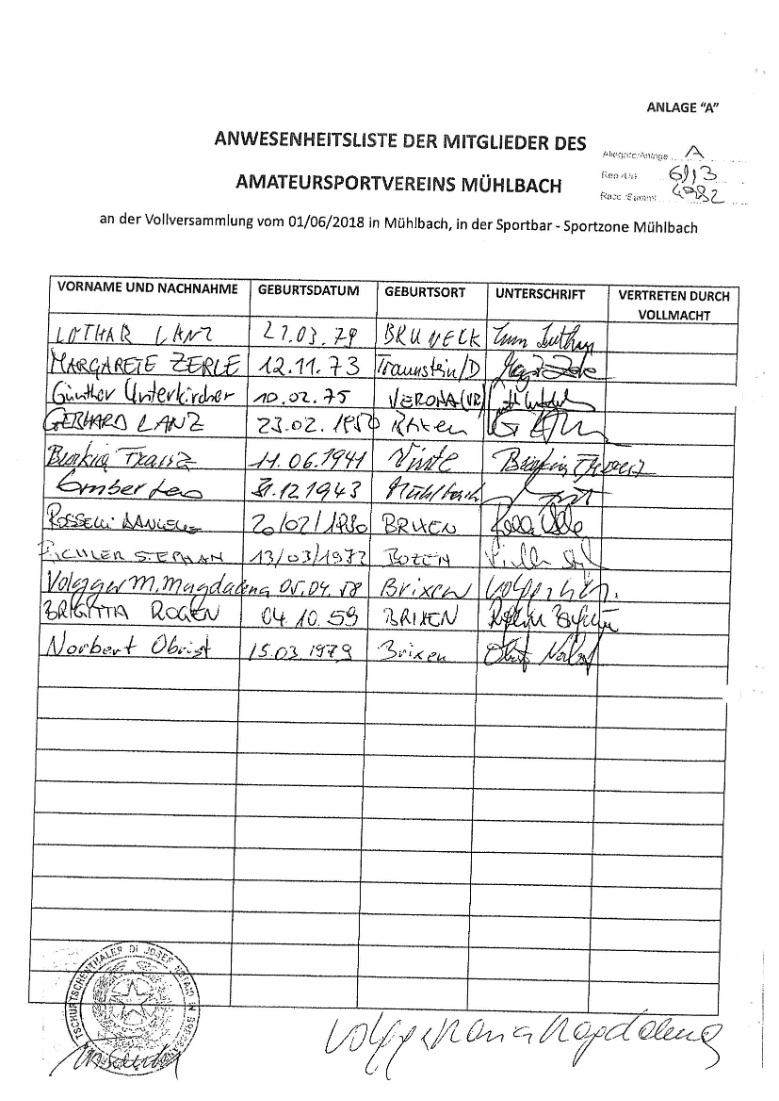 ANLAGE "A"
ANWESENHEITSLISTE DER MITGLIEDER DES
AMATEURSPORTVEREINS MÜHLBACH
Allegato/Anlage A
Rep. 6113
Racc. 4982
an der Vollversammlung vom 01/06/2018 in Mühlbach, in der Sportbar - Sportzone Mühlbach
VORNAME UND NACHNAHME GEBURTSDATUM GEBURTSORT UNTERSCHRIFT VERTRETEN DURCH VOLLMACHT
LOTHAR LANZ 27.03.79 BRUNECK
MARGARETE ZERLE 12.11.73 Traunstein/D
Günther Unterkircher 10.02.75 VERONA (VR)
GERHARD LANZ 23.02.1950
11.06.1941
31.12.1943 Mühlbach
20/02/1980 BRIXEN
PICHLER STEPHAN 13/03/1972 BOZEN
Volgger M. Magdalena 05.04.58 Brixen
BRIGITTA ROGEN 04.10.59 BRIXEN
Norbert Obrist 15.03.1979 Brixen Obrist Norbert
TSCHURTSCHENTHALER DI JOSEF NOTAIO IN
Volgger Maria Magdalena